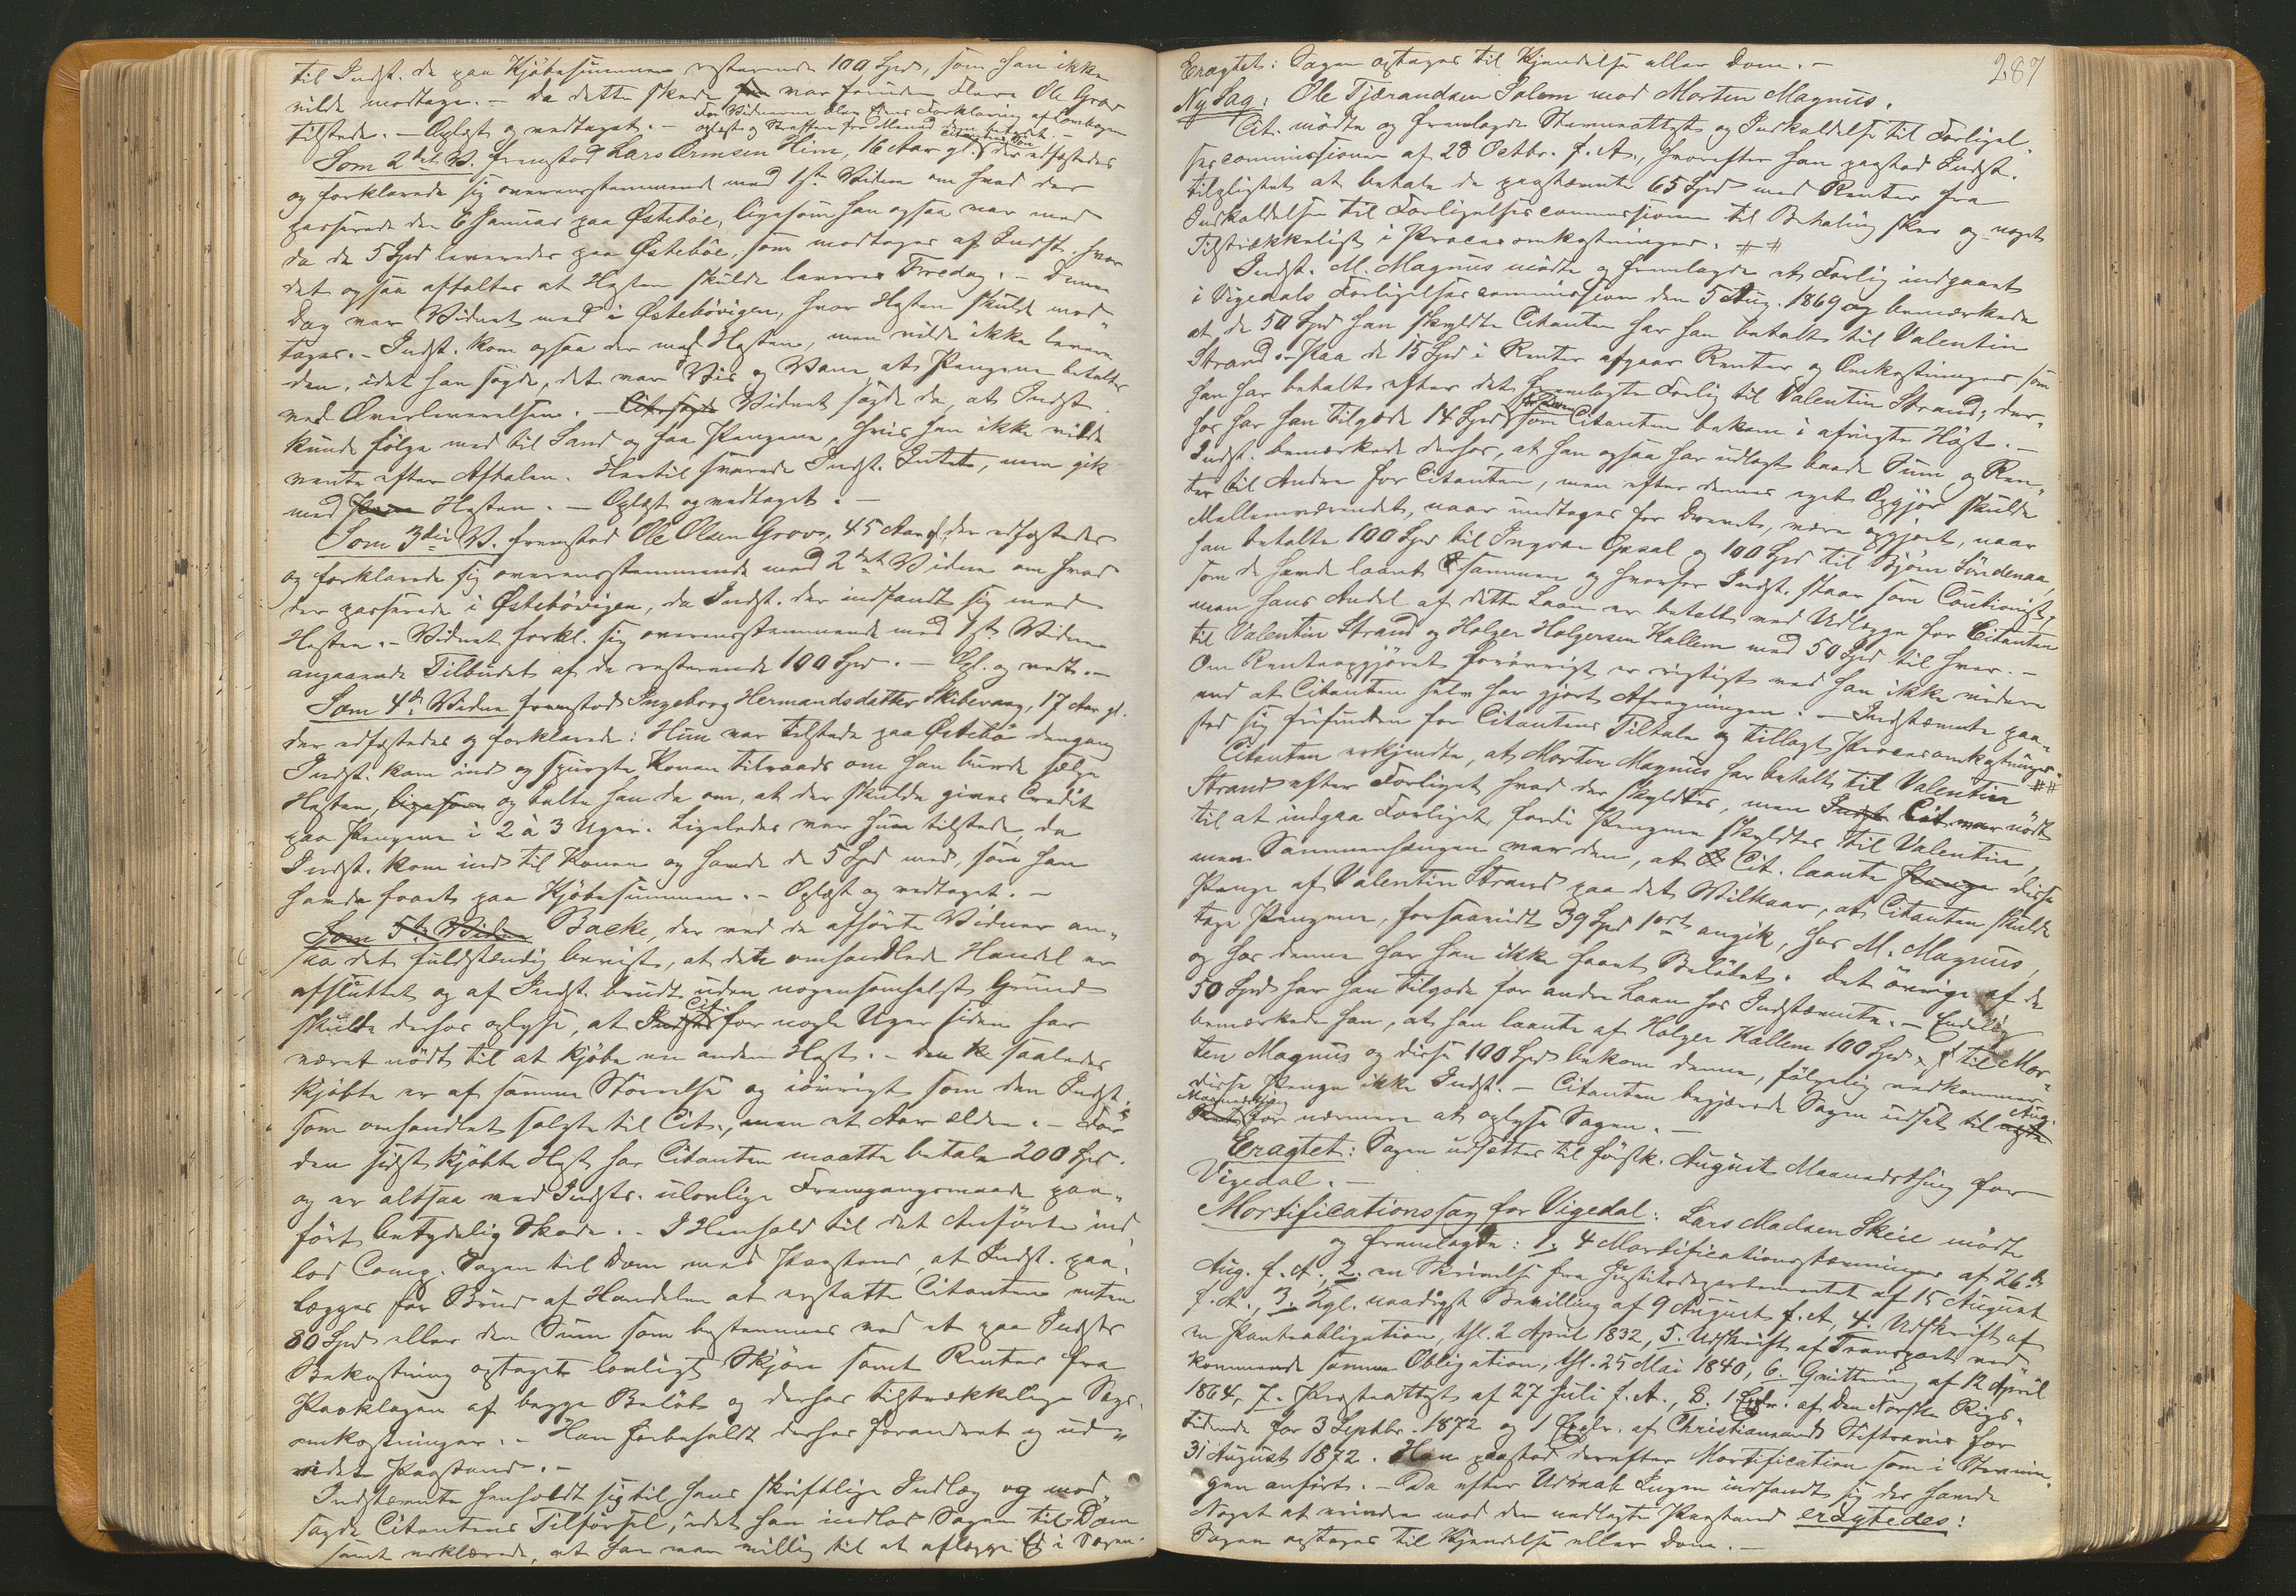 til Indst. de paa Kjöbesummen resterende 100 Spd, som han ikke
vilde modtage. – Da dette skede var foruden Flere Ole Grov
tilstede. – Oplæst og vedtaget. –
For Vidnerne blev deres Forklaring af
oplæst og Straffen for Meened dem betydet. –
Som 2det V. fremstod Lars Ormsen Him, 16 Aar gl., der edfæstedes
og forklarede sig overensstemmende med 1ste Vidne om hvad der
passerede den 6 Januar paa Østeböe, ligesom han ogsaa var med
da de 5 Spd leveredes paa Østeböe, som modtoges af Indst. hvor
det ogsaa aftaltes at Hesten skulde leveres Fredag. – Denne
Dag var Vidnet med i Østebövigen, hvor Hesten skulde mod„
tages. – Indst. kom ogsaa der med Hesten, men vilde ikke levere
den, idet han sagde, det var Vis og Vane at Pengene betaltes
ved Overleverelsen. – Cit. sagde Vidnet sagde da, at Indst.
kunde fölge med til Sand og faa Pengene, hvis han ikke vilde
vente efter Aftalen. Hertil svarede Indst. Intet, men gik
med Hesten. – Oplæst og vedtaget. –
Som 3die V. fremstod Ole Olsen Grov, 45 Aar gl., der edfæstedes
og forklarede sig overensstemmende med 2det Vidne om hvad
der passerede i Østebövigen, da Indst. der indfandt sig med
Hesten. – Vidnet forkl. sig overensstemmende med 1ste Vidne
angaaende Tilbudet af de resterende 100 Spd. – Opl. og vedt. –
Som 4de Vidne fremstod Ingeborg Hermandsdatter Skibevaag, 17 Aar gl.
der edfæstedes og forklarede: Hun var tilstede paa Østebö dengang
Indst. kom ind og spurgte Konen tilraads om han burde sælge
Hesten, ligesom og talte han da om, at der skulde gives Credit
paa Pengene i 2 à 3 Uger. Ligeledes var hun tilstede, da
Indst. kom ind til Konen og havde de 5 Spd med, som han
havde faaet paa Kjöbesummen. – Oplæst og vedtaget. –
Som 5te Vidne Backe, der ved de afhörte Vidner an„
saa det fuldstændig bevist, at den omhandlede Handel er
afsluttet og af Indst. brudt uden nogensomhelst Grund
skulde derhos oplyse, at Indst. Cit. for nogle Uger siden har
været nödt til at kjöbe en anden Hest. – Den saaledes
kjöbte er af samme Störrelse og iövrigt som den Indst.
som omhandlet solgte til Cit., men et Aar ældre. – For
den sidst kjöbte Hest har Citanten maatte betale 200 Spd.
og er altsaa ved Indsts. ulovlige Fremgangsmaade paa„
fört betydelig Skade. – I Henhold til det Anförte ind„
lod Comp. Sagen til Dom med Paastand, at Indst. paa„
lægges for Brud af Handelen at erstatte Citanten enten
80 Spd eller den Sum som bestemmes ved et paa Indsts
Bekostning optaget lovligt Skjön samt Renter fra
Paaklagen af begge Belöb og derhos tilstrækkelige Sags„
omkostninger. – Han forbeholdt derhos forandret og ud„
videt Paastand. –
Indstævnte henholdt sig til hans skriftlige Indlæg og mod„
sagde Citantens Tilförsel, idet han indlod Sagen til Dom
samt erklærede, at han var villig til at aflægge Ed i Sagen.
287
Eragtet: Sagen optages til Kjendelse eller Dom. –
Ny Sag: Ole Tjærandsen Solem mod Morten Magnus.
Cit. mödte og fremlagde Stævneattest og Indkaldelse til Forligel„
sescommissionen af 28 Octbr. f. A., hvorefter han paastod Indst.
tilpligtet at betale de paastævnte 65 Spd med Renter fra
Indkaldelsen til Forligelsescommissionen til Betaling sker og noget
Tilstrækkeligt i Procesomkostninger. ##
Indst. M. Magnus mödte og fremlagde et Forlig indgaaet
i Vigedals Forligelsescommission den 5 Aug. 1869 og bemærkede
at de 50 Spd han skyldte Citanten har han betalt til Valentin
Strand. – Paa de 15 Spd i Renter afgaar Renter og Omkostninger som
han har betalt efter det fremlagte Forlig til Valentin Strand; der„
hos har han tilgode 14 Spd som Citanten bekom i afvigte Höst. –
Indst. bemærkede derhos, at han ogsaa har udlagt baade Sum og Ren„
ter til Andre for Citanten, men efter dennes eget Opgjör skulde
Mellemværendet, naar undtages for Ovennte, være opgjort, naar
han betalte 100 Spd til Ingvar Opsal og 100 Spd til Björn Söndenaa,
som de havde laant sammen og hvorfor Indst. staar som Cautionist,
men hans Andel af dette Laan er betalt ved Udlægge for Citanten
til Valentin Strand og Holger Holgersen Kallem med 50 Spd til hver. –
Om Renteopgjöret forövrigt er rigtigt ved han ikke videre
end at Citanten selv har gjort Afregningen. – Indstævnte paa„
stod sig frifunden for Citantens Tiltale og tillagt Procesomkostninger.
Citanten erkjendte, at Morten Magnus har betalt til Valentin ##
Strand efter Forliget hvad der skyldtes, men Indst. Cit. var nödt
til at indgaa Forliget fordi Pengene skyldtes til Valentin,
men Sammenhængen var den, at Cit. laante Penge disse
Penge af Valentin Strand paa det Vilkaar, at Citanten skulde
tage Pengene, forsaavidt 39 Spd 1 ort angik, hos M. Magnus,
og hos denne har han ikke faaet Belöbet. Det övrige af de
50 Spd har han tilgode for andre Laan hos Indstævnte. – Endelig
bemærkede han, at han laante af Holger Kallem 100 Spd til Mor„
ten Magnus og disse 100 Spd bekom denne, fölgelig vedkommer
disse Penge ikke Indst. – Citanten begjærede Sagen udsat til Aug.
Maanedsthing for nærmere at oplyse Sagen. –
Eragtet: Sagen udsættes til förstk. August Maanedsthing for
Vigedal. –
Mortificationssag for Vigedal: Lars Madsen Skeie mödte
og fremlagde: 1. 4 Mortificationsstævninger af 26de
Aug. f. A., 2. en Skrivelse fra Justitsdepartementet af 15 August
f. A., 3. Kgl. naadigst Bevilling af 9 August f. A., 4. Udskrift af
en Panteobligation, thl. 2 April 1832, 5. Udskrift af Transport ved„
kommende samme Obligation, thl. 25 Mai 1840, 6. Qvittering af 12 April
1864, 7. Præsteattest af 27 Juli f. A., 8. 1 Explr. af Den Norske Rigs„
tidende for 3 Septbr. 1872 og 1 Explr. af Christianssands Stiftsavis for
31 August 1872. Han paastod derefter Mortification som i Stævnin„
gen anfört. – Da efter Udraab Ingen indfandt sig der havde
Noget at erindre mod den nedlagte Paastand eragtedes:
Sagen optages til Kjendelse eller Dom. –